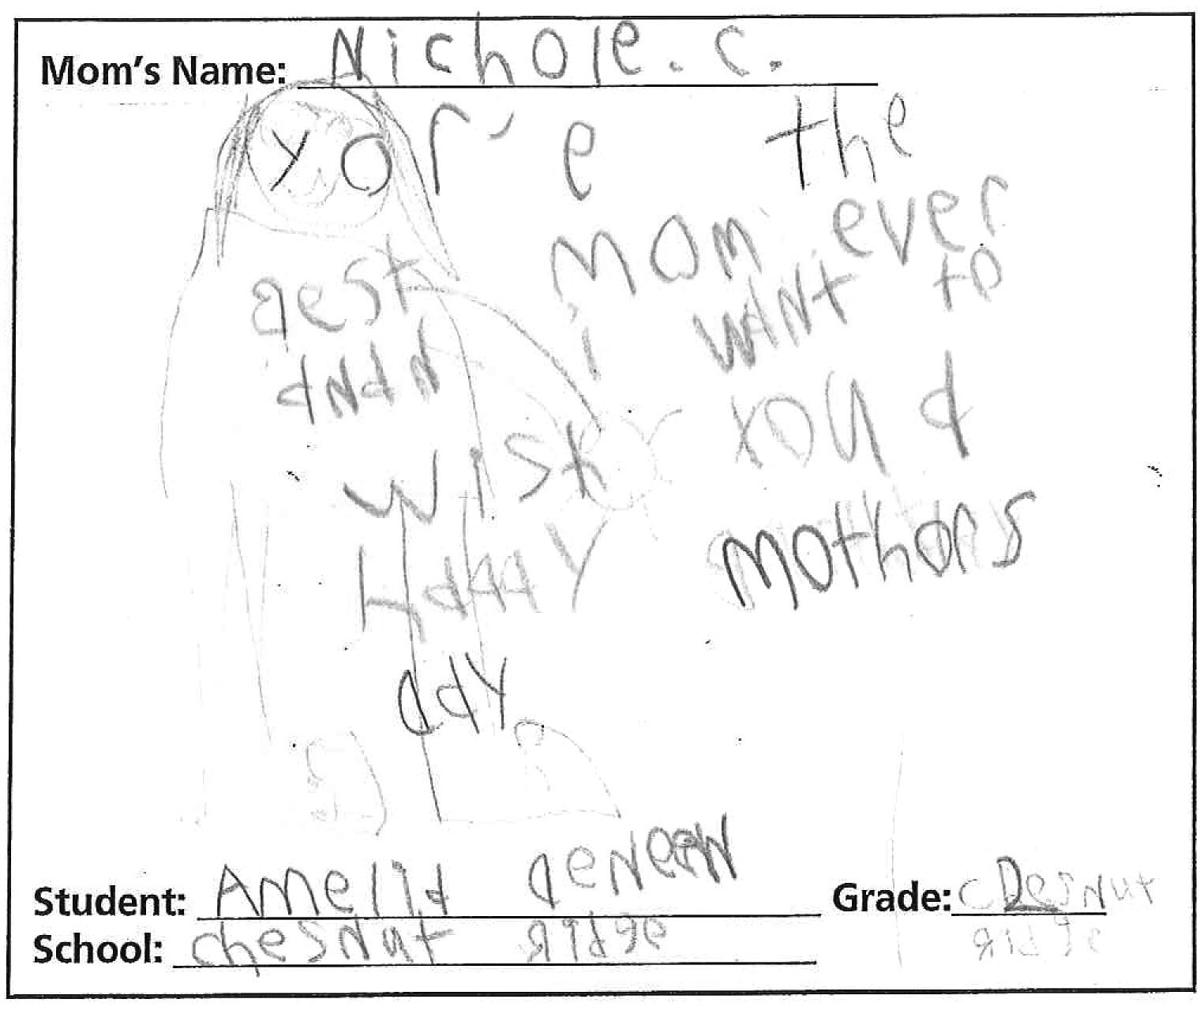 Mom's Name: Nichole. C.
Yor'e the
Best mom ever
and i want to
wish you a
Happy mothors
day
Student: Amelia
School: chesnut ridge
Grade: 2 chesnut
ridge